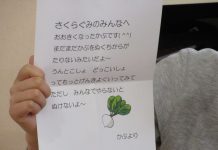 さくらぐみのみんなへ
おおきくなったかぶです！(^^)
まだまだかぶをぬくちからが
たりないみたいだよ～
うんとこしょ　どっこいしょ
ってもっとげんきよくいってみて
ただし　みんなでやらないと
ぬけないよ～
かぶより